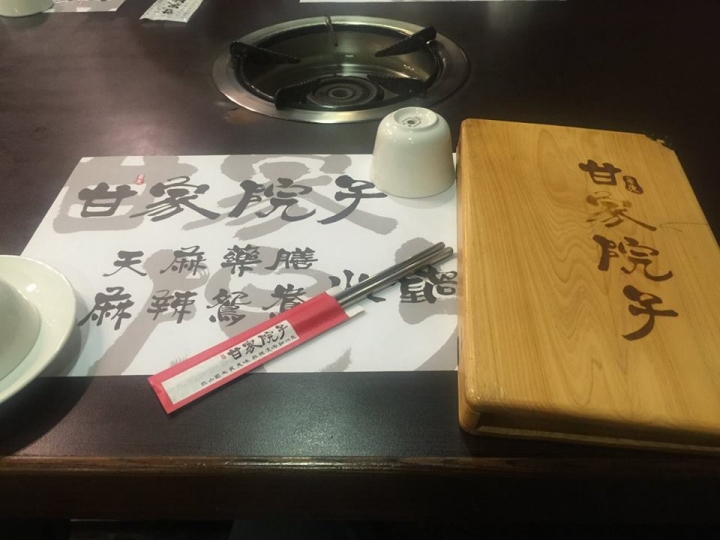 甘家院子
天麻藥膳
麻辣鴛鴦火鍋
甘家院子
甘家院子